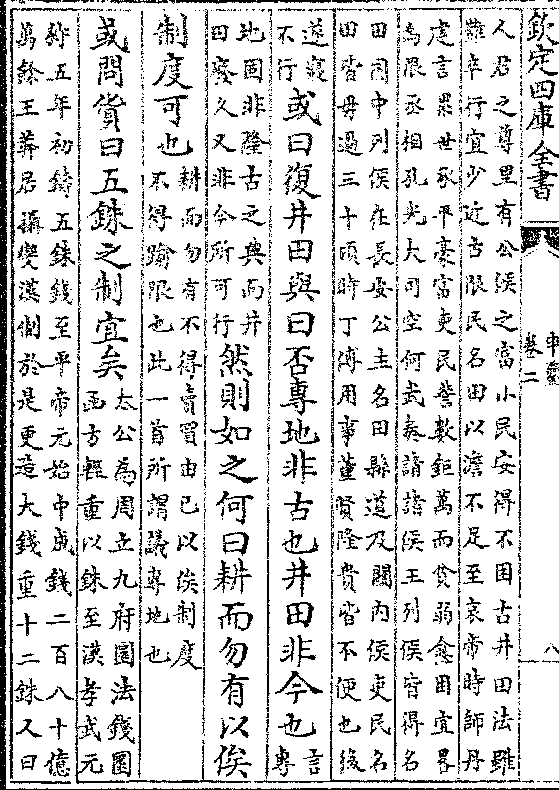 欽定四庫全書
申鑒
卷二
八
人君之尊里有公侯之富小民安得不困古井田法雖
難卒行宜少近古限民名田以澹不足至哀帝時師丹
建言累世承平豪富吏民訾數鉅萬而貧弱愈困宜畧
為限丞相孔光大司空何武奏請諸侯王列侯皆得名
田國中列侯在長安公主名田縣道及關內侯吏民名
田皆毋過三十頃時丁傅用事董賢隆貴皆不便也後
遂寢
不行
或曰復井田與曰否專地非古也井田非今也
言
專
地固非隆古之典而井
田廢久又非今所可行
然則如之何曰耕而勿有以俟
制度可也
耕而勿有不得賣買由已以俟制度
不得踰限也此一首所謂議專地也
或問貨曰五銖之制宜矣
太公為周立九府圜法錢圜
函方輕重以銖至漢孝武元
狩五年初鑄五銖錢至平帝元始中成錢二百八十億
萬餘王莽居攝變漢制於是更造大錢重十二銖又曰